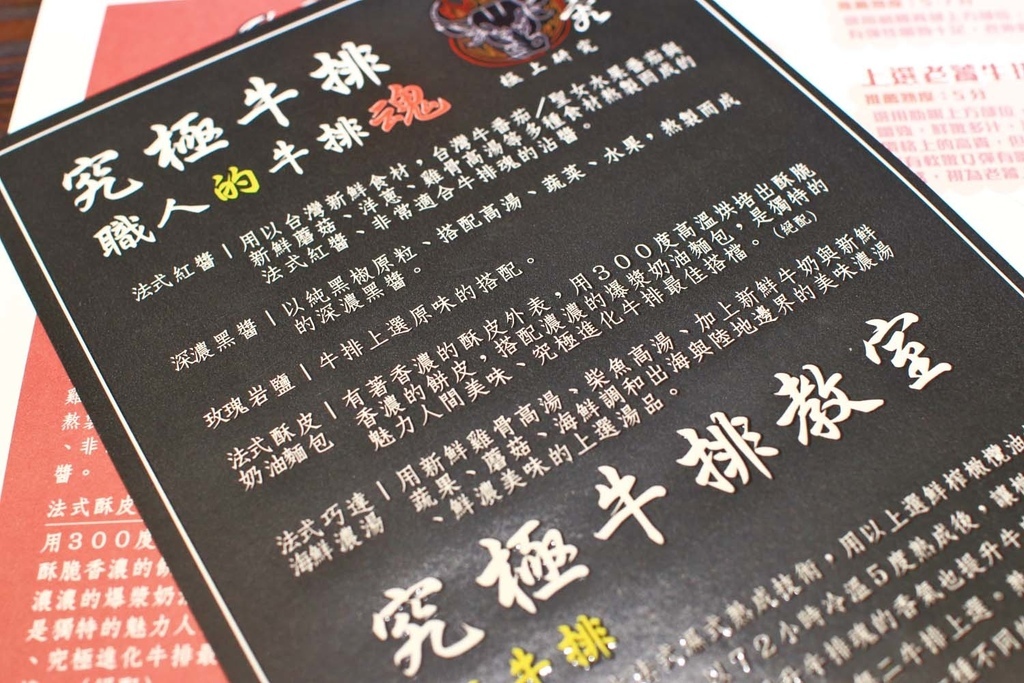 極上研究
究極牛排
職人的牛排魂
法式紅醬｜用以台灣新鮮食材，台灣牛番茄／聖女水果番茄鮮
新鮮蘑菇、洋蔥、雞骨高湯等多種食材熬製而成的
法式紅醬、非常適合牛排魂的沾醬。
深濃黑醬｜以純黑椒原粒、搭配高湯、蔬菜、水果，熬製而成
的深濃黑醬。
玫瑰岩鹽｜牛排上選原味的搭配。
法式酥皮｜有著香濃的酥皮外表，用300度高溫烘培出酥脆
奶油麵包 香濃的餅皮，搭配濃濃的爆漿奶油麵包，是獨特的
魅力人間美味、究極進化牛排最佳搭檔。(絕配)
法式巧達｜用新鮮雞骨高湯、柴魚高湯、加上新鮮牛奶與新鮮
海鮮濃湯 蔬果、蘑菇、海鮮調和出海與陸地邊界的美味濃湯
、鮮濃美味的上選湯品。
究極牛排教室
牛排
式熟成技術，用以上選鮮榨橄欖油
72小時冷溫5度熟成後，讓
牛排魂的香氣也提升牛
二牛排上選，
種不同
上選老饕牛
推薦熟度：5分
熬
、非
醬。
法式酥皮
用300度
酥脆香濃的
濃濃的爆漿奶
是獨特的魅力人
、究極進化牛排最